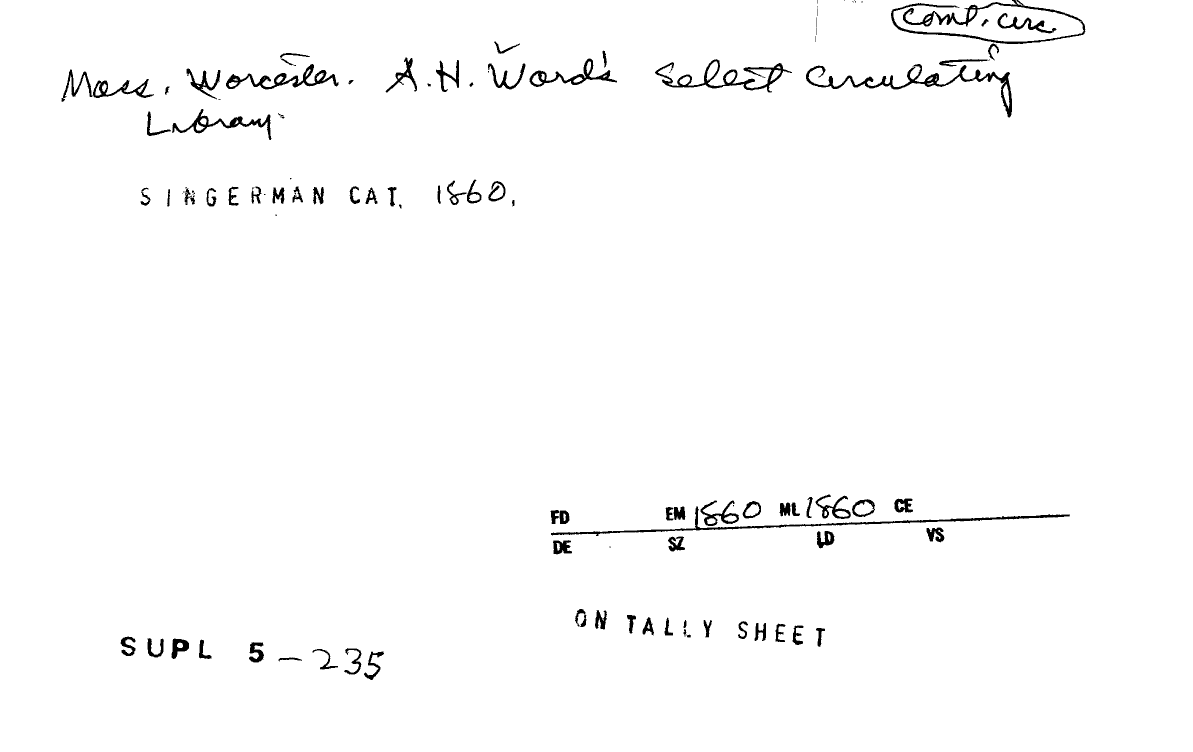 comp. circ
Mass. Worcester. A.H. Ward's Select Circulating
Library.
SINGERMAN CAT. 1860.
FD EM 1860 ML 1860 CE
DE SZ LD VS
ON TALLY SHEET
SUPL 5 - 235